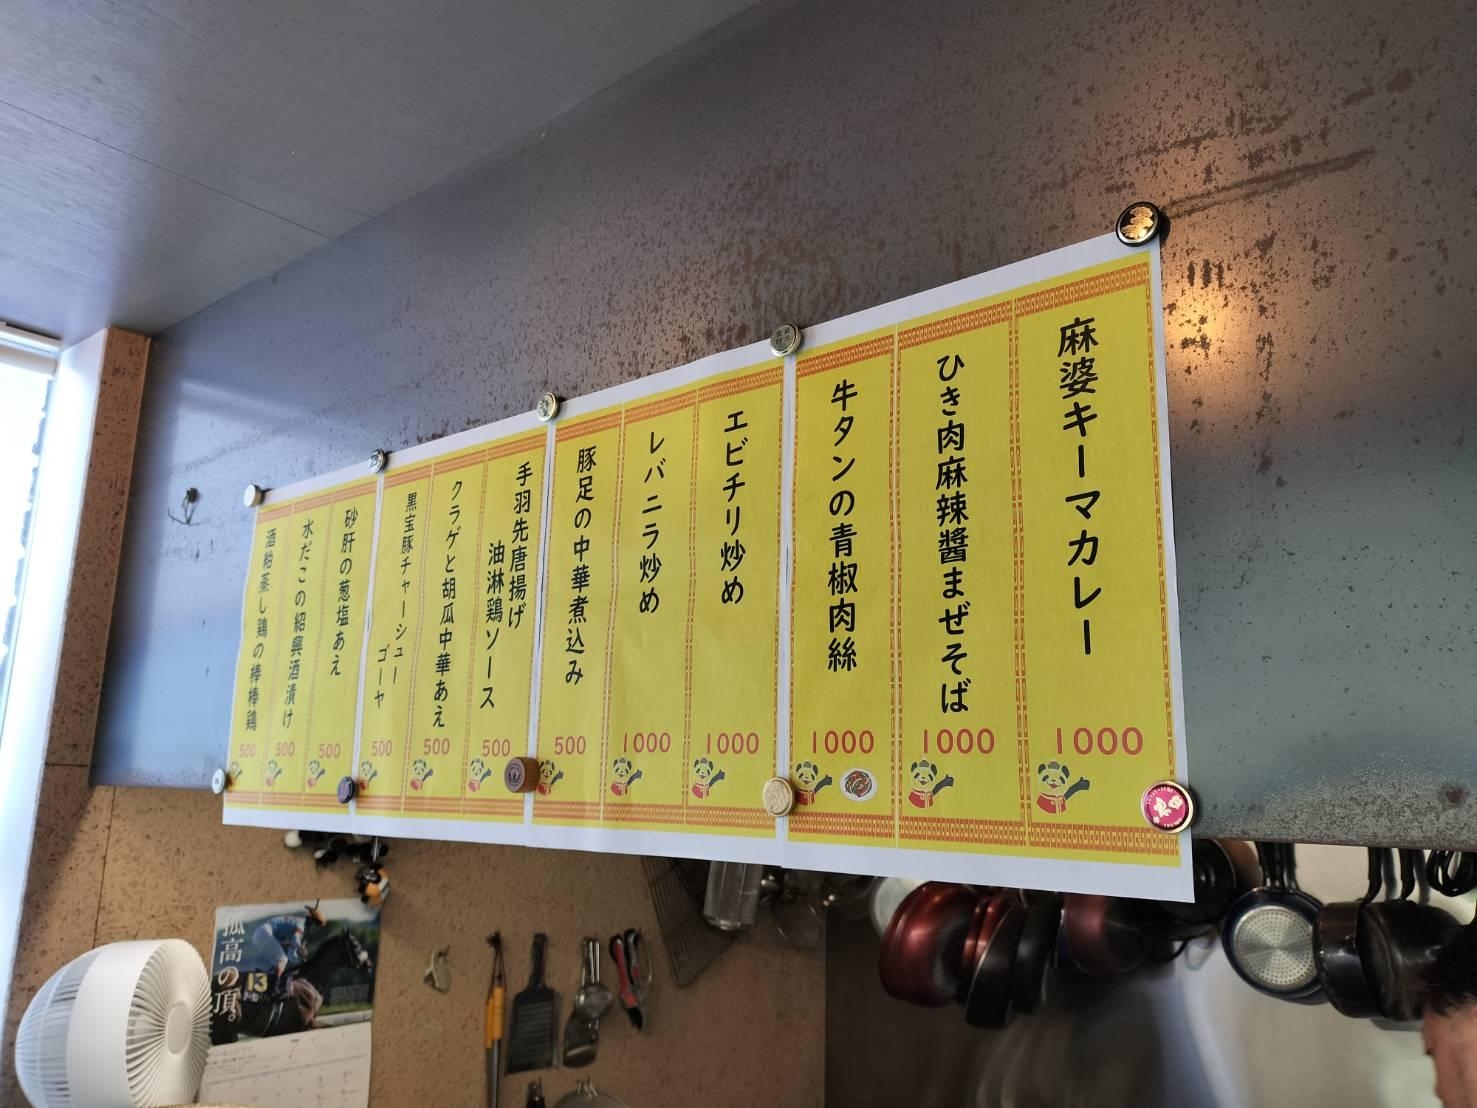 麻婆キーマカレー
1000
ひき肉麻辣醤まぜそば
1000
牛タンの青椒肉絲
1000
エビチリ炒め
1000
レバニラ炒め
1000
豚足の中華煮込み
500
手羽先唐揚げ
油淋鶏ソース
500
クラゲと胡瓜中華あえ
500
黒宝豚チャーシュー
ゴーヤ
500
砂肝の葱塩あえ
500
水だこの紹興酒漬け
500
酒粕蒸し鶏の棒棒鶏
500
孤高の頂。
13
7